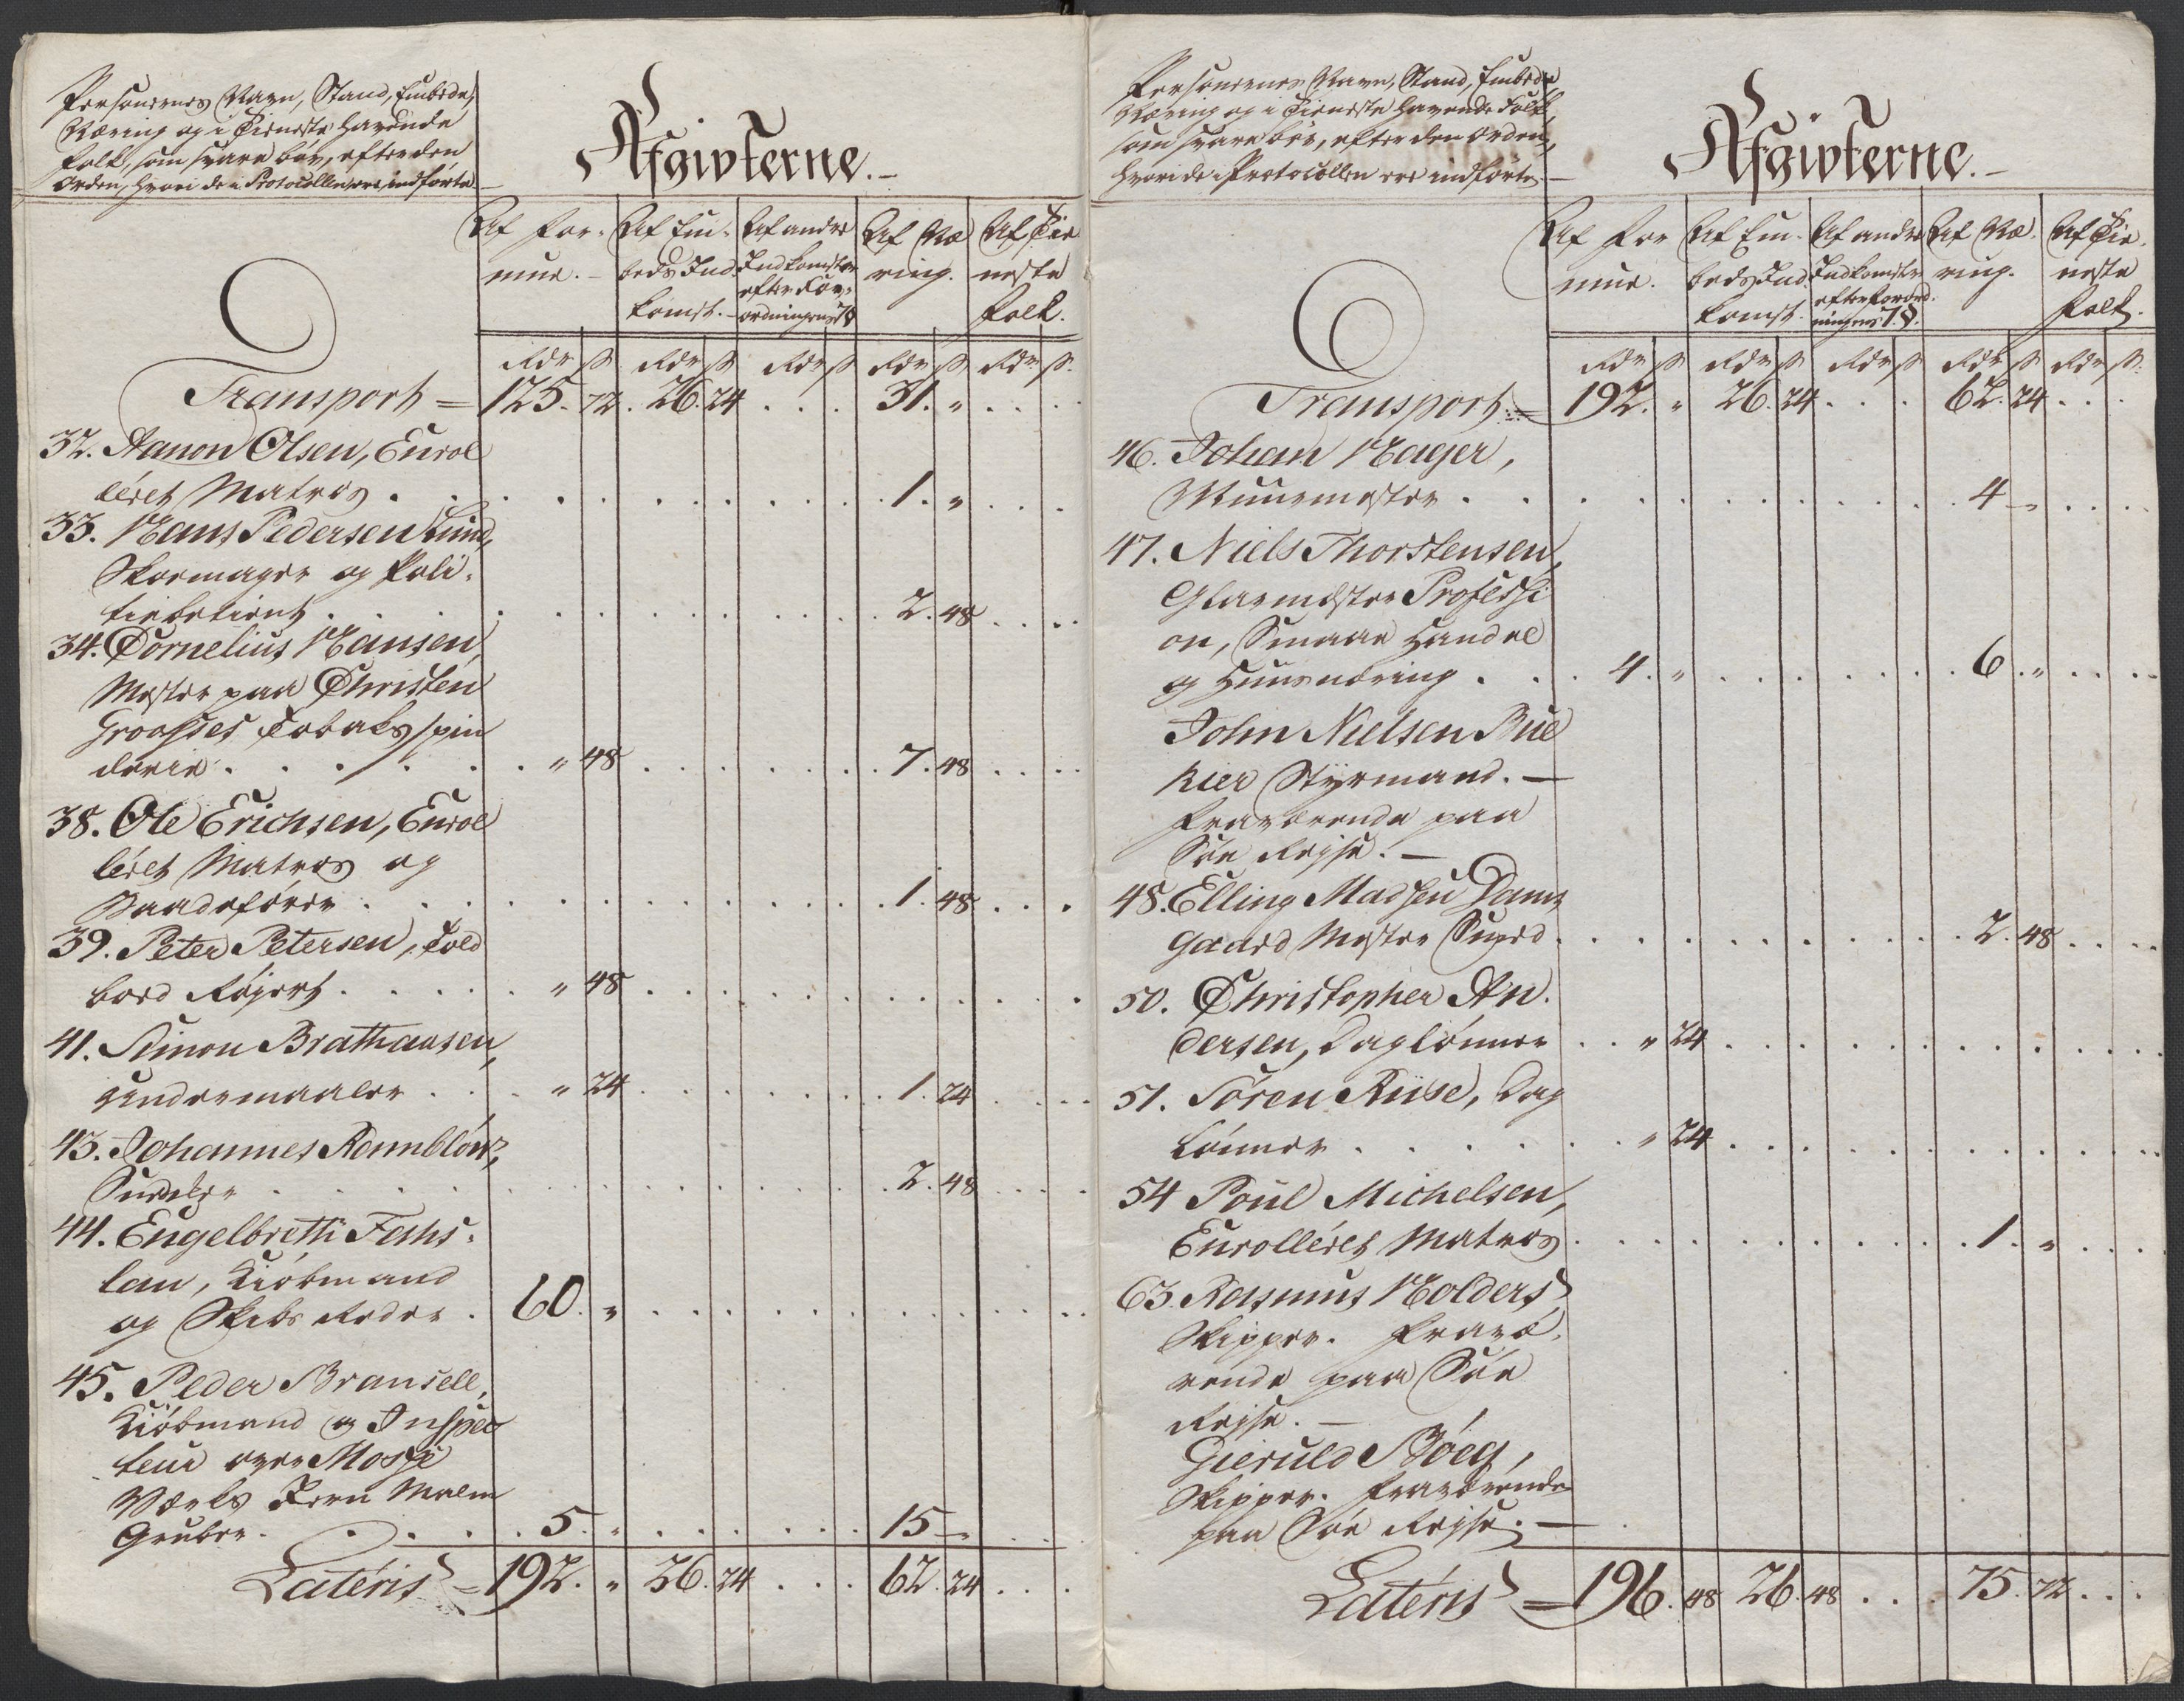 Personernes Navn, Stand, Embede,
Næring og i Tieneste havende
Folk, som svare bør, efter den
Orden, hvori de i Protocollen ere indførte
Afgivterne.
Af For- Af Em- Af andre Af Næ Af Tie
mue. beds Ind Indkomster ring. neste
efter For-
komst. ordningens 7 § Folk.
Rdr ß Rdr ß Rdr ß Rdr ß Rdr ß
Transport = 125. 72. 26. 24 . . . 31. " . . .
32. Aanon Olsen, Enrol
leret Matros . . . . 1. " . . .
33. Hans Pedersen Lund,
Skoemager og Poli-
tiebetient . . . . 2. 48 . . .
34. Cornelius Hansen,
Mester paa Christen
Groosses Tobaks spin
derie . . . " 48 . . . . 7. 48 . . .
38. Ole Erichsen, Enrol
leret Matros og
Baadsfører . . . . 1. 48 . . .
39. Peter Petersen, Told
boed Røgert . . . " 48 . . . .
41. Simon Brathausen,
. . . " 24 . . . . 1. 24 . . .
43. Johannes
. . . . 2. 48 . . .
44. Engelbreth Fehs-
lau, Kiøbmand
og Skibs Reder . 60. " . . . .
45. Peder Bransell,
Kiøbmand og Inspec
teur over Mosse
Værks Jern Malm
Gruber . . . 5. " . . . . 15 " . . .
Lateris = 192. " 26. 24 . . . 62. 24 . . .
Personernes Navn, Stand, Embede
Næring og i Tieneste havende Folk,
som svare bør, efter den Orden,
hvori de i Protocollen ere indførte.
Afgivterne.
Af For Af Em- Af andre Af Næ- Af Tie-
mue. beds Ind Indkomster ring. neste
efter Forord-
komst. ningens 7. §. Folk.
Rdr ß Rdr ß Rdr ß Rdr ß Rdr ß
Transport = 192. " 26. 24 . . . 62. 24 . . .
46. Johan Hager,
Muurmester . . . . 4 " . . .
47. Niels Thorstensen,
Glarmester Professi
on, Smaae Handel
og Huusnæring . . 4. " . . . . 6. " . . .
John Nielsen Bie
kier Styrmand. —
Fraværende paa
Søe Rejse. —
48. Elling Madsen Dams
gaard Mester Smed . . . . 2. 48 . . .
50. Christopher An-
dersen, Daglønner . . " 24 . . . .
51. Søren Riise, Dag
lønner . . . " 24 . . . .
54 Poul Michelsen,
Enrolleret Matros . . . . 1. " . . .
63. Rasmus Holders
Skipper. Fravæ-
rende paa Søe
Rejse. —
Gieruld Bøeg,
Skipper. Fraværende
paa Søe Rejse. —
Lateris = 196. 48 26. 48 . . . 75. 72 . . .